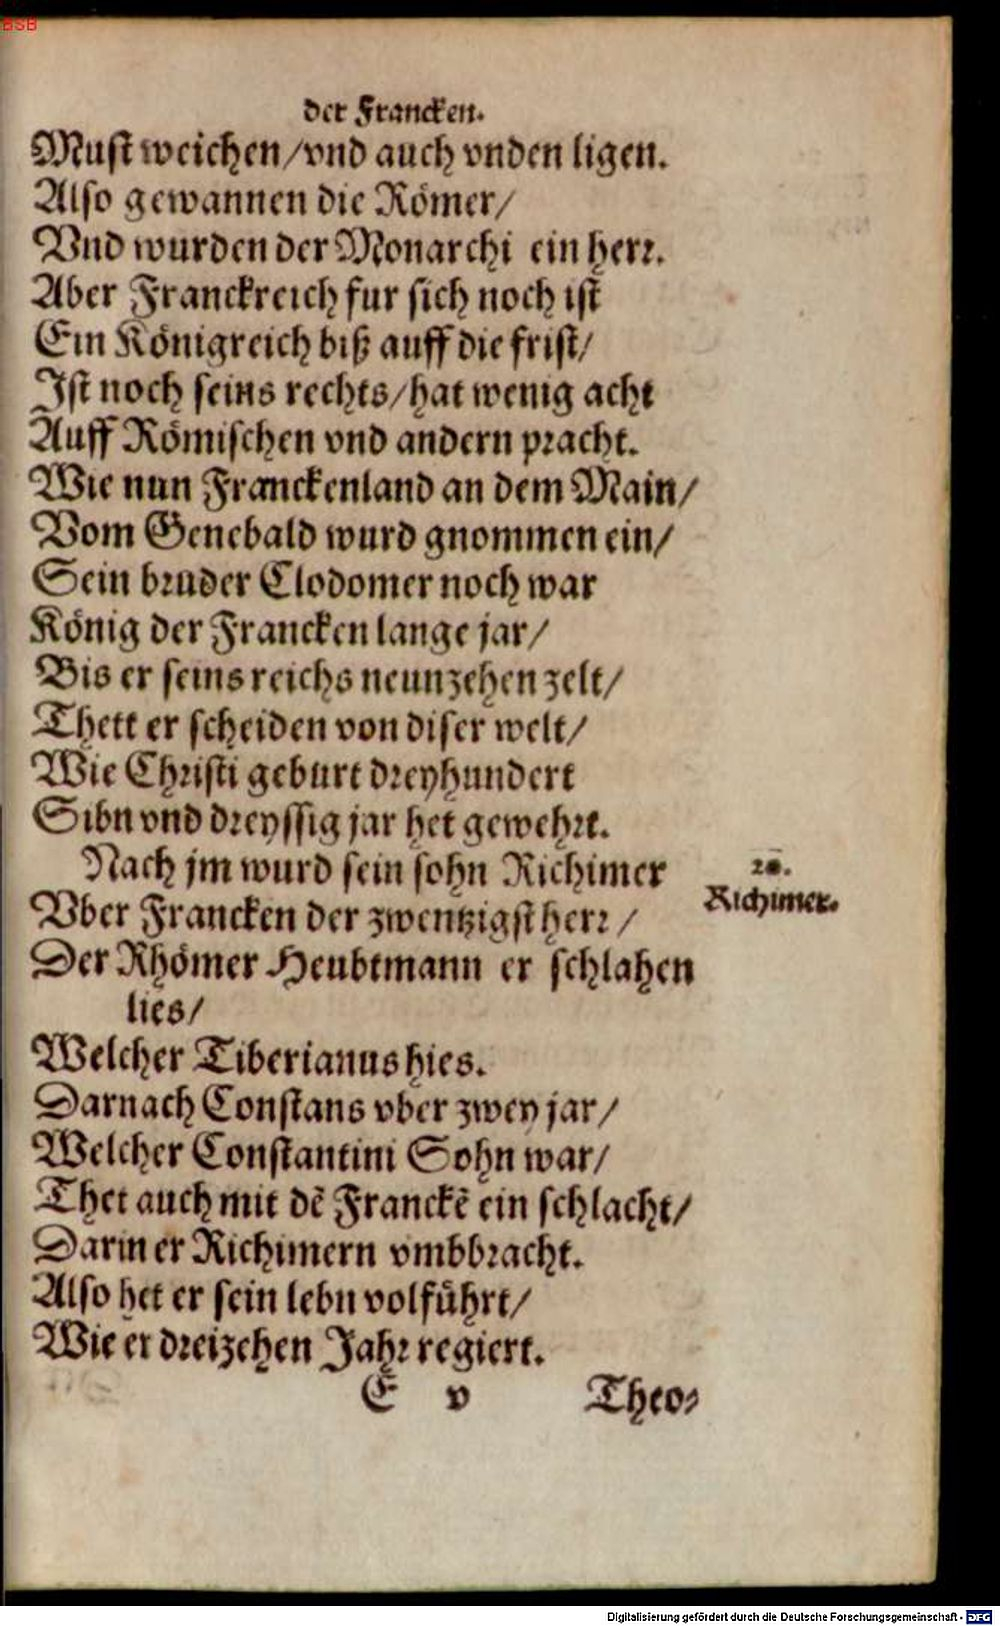 BSB
der Francken.
Must weichen/vnd auch vnden ligen.
Also gewannen die Römer/
Vnd wurden der Monarchi ein herr.
Aber Franckreich fur sich noch ist
Ein Königreich biß auff die frist/
Ist noch seins rechts/hat wenig acht
Auff Römischen vnd andern pracht.
Wie nun Franckenland an dem Main/
Vom Genebald wurd gnommen ein/
Sein bruder Clodomer noch war
König der Francken lange jar/
Bis er seins reichs neunzehen zelt/
Thett er scheiden von diser welt/
Wie Christi geburt dreyhundert
Sibn vnd dreyssig jar het gewehrt.
Nach jm wurd sein sohn Richimer
20.
Vber Francken der zwentzigst herr/
Richimer.
Der Rhömer Heubtmann er schlahen
lies/
Welcher Tiberianus hies.
Darnach Constans vber zwey jar/
Welcher Constantini Sohn war/
Thet auch mit dẽ Franckẽ ein schlacht/
Darin er Richimern vmbbracht.
Also het er sein lebn volführt/
Wie er dreizehen Jahr regiert.
E v Theo⸗
Digitalisierung gefördert durch die Deutsche Forschungsgemeinschaft - DFG